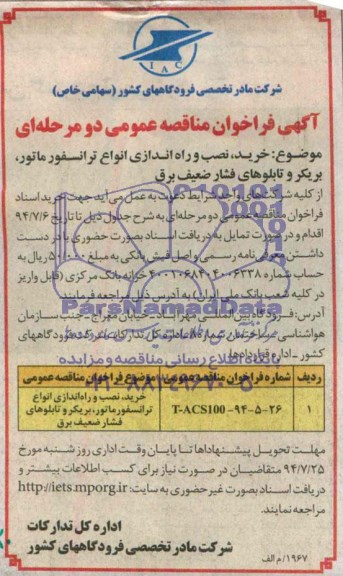 IAC
شرکت مادر تخصصی فرودگاههای کشور (سهامی خاص)
آگهی فراخوان مناقصه عمومی دو مرحله‌ای
موضوع: خرید، نصب و راه اندازی انواع ترانسفورماتور،
بریکر و تابلوهای فشار ضعیف برق
از کلیه شرکت‌های واجد شرایط دعوت به عمل می آید جهت خرید اسناد
فراخوان مناقصه عمومی دو مرحله‌ای به شرح جدول ذیل تا تاریخ ۹۴/۷/۶
اقدام و در صورت تمایل به دریافت اسناد بصورت حضوری با در دست
داشتن معرفی نامه رسمی و اصل فیش بانکی به مبلغ ریال به
حساب شماره خزانه بانک مرکزی (قابل واریز
در کلیه شعب بانک ملی ایران) به آدرس ذیل مراجعه فرمایند.
آدرس: فرودگاه بین‌المللی مهرآباد- خیابان معراج- جنب سازمان
هواشناسی- ساختمان شماره اداره کل تدارکات شرکت فرودگاههای
کشور - اداره قراردادها.
ParsNamadData
پایگاه اطلاع رسانی مناقصه و مزایده
ردیف شماره فراخوان مناقصه عمومی موضوع فراخوان مناقصه عمومی
۱ T-ACS100-۹۴-۵-۲۶ خرید، نصب و راه‌اندازی انواع
ترانسفورماتور، بریکر و تابلوهای
فشار ضعیف برق
مهلت تحویل پیشنهاداها تا پایان وقت اداری روز شنبه مورخ
۹۴/۷/۲۵ متقاضیان در صورت نیاز برای کسب اطلاعات بیشتر و
دریافت اسناد بصورت غیر حضوری به سایت: http://iets.mporg.ir
مراجعه نمایند.
اداره کل تدارکات
شرکت مادر تخصصی فرودگاههای کشور
۱۹۶۷/م الف